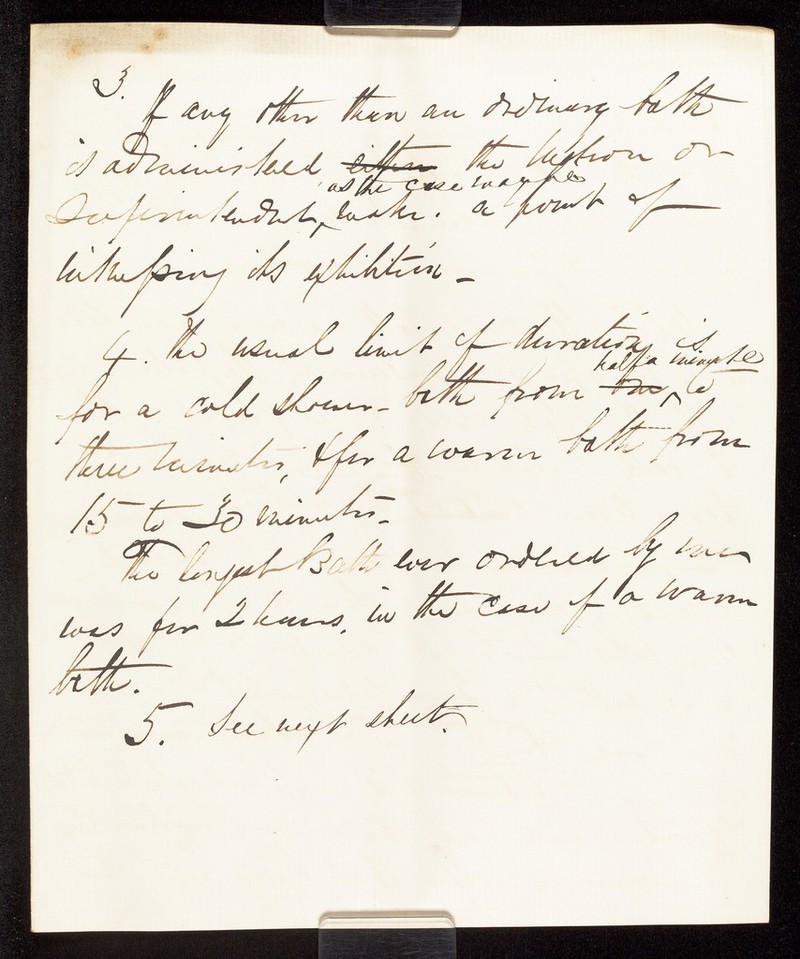 3.
If any other than an ordinary bath
is administered either the Matron or
as the case may be
Superintendent, make a point of
witnessing its exhibition -
4. The usual limit of duration is
half a minute
for a cold shower-bath from one, to
three minutes, & for a warm bath from
15 to 30 minutes.
The longest Bath ever ordered by me
was for 2 hours, in the case of a warm
bath.
5. See next sheet.